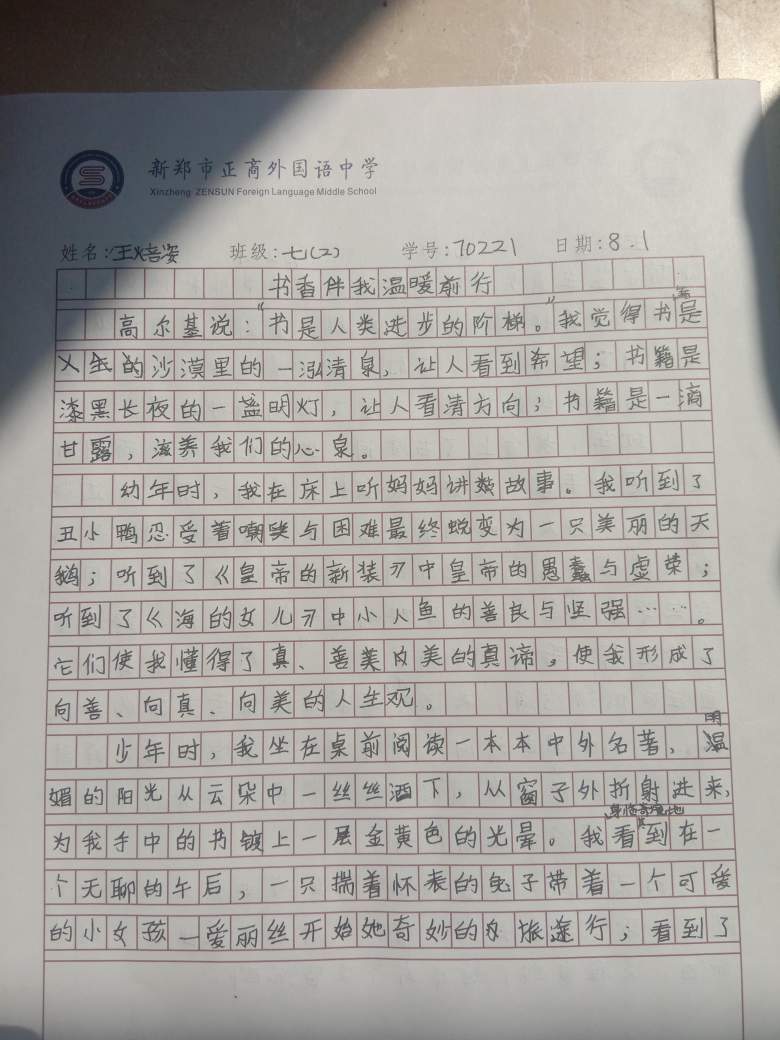 新郑市正商外国语中学
Xinzheng ZENSUN Foreign Language Middle School
姓名:王焙姿 班级:七(2) 学号:70221 日期:8.1
书香伴我温暖前行
高尔基说:“书是人类进步的阶梯。”我觉得书籍是
的沙漠里的一泓清泉,让人看到希望;书籍是
漆黑长夜的一盏明灯,让人看清方向;书籍是一滴
甘露,滋养我们的心泉。
幼年时,我在床上听妈妈讲故事。我听到了
丑小鸭忍受着嘲笑与困难最终蜕变为一只美丽的天
鹅;听到了《皇帝的新装》中皇帝的愚蠢与虚荣;
听到了《海的女儿》中小人鱼的善良与坚强……。
它们使我懂得了真、善美及美的真谛,使我形成了
向善、向真、向美的人生观。
少年时,我坐在桌前阅读一本本中外名著,明
媚的阳光从云朵中一丝丝洒下,从窗子外折射进来,
为我手中的书镀上一层金黄色的光晕。我身临其境地看到在一
个无聊的午后,一只揣着怀表的兔子带着一个可爱
的小女孩—爱丽丝开始她奇妙的旅途行;看到了